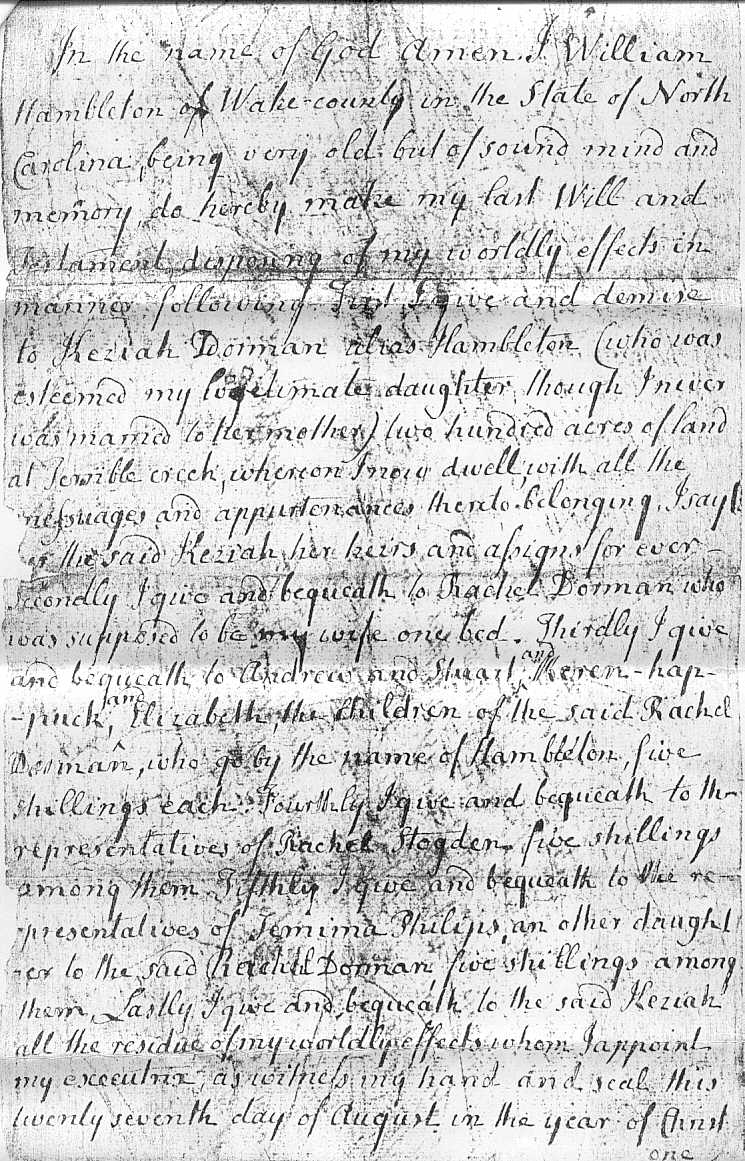 In the name of God Amen. I William
Hambleton of Wake county in the State of North
Carolina, being very old but of sound mind and
memory, do hereby make my last Will and
Testament disposing of my worldly effects in
manner following. First I give and demise
to Keziah Dorman alias Hambleton (who was
esteemed my legitimate daughter, though I never
was married to her mother) two hundred acres of land
at Terrible creek, whereon I now dwell, with all the
messuages and appurtenances thereto belonging, I say to
her the said Keziah, her heirs and assigns for ever -
Secondly I give and bequeath to Rachel Dorman who
was supposed to be my wife one bed. Thirdly I give
and bequeath to Andrew and Stuart and Keren-hap-
-puck, and Elizabeth, the children of the said Rachel
Dorman, who go by the name of Hambleton, five
shillings each. Fourthly I give and bequeath to the
representatives of Rachel Stogden five shillings
among them Fifthly I give and bequeath to the re-
-presentatives of Jemima Philips, an other daught
-er to the said Rachel Dorman five shillings among
them, Lastly I give and bequeath to the said Keziah
all the residue of my worldly effects whom I appoint
my executrix, as witness my hand and seal this
twenty seventh day of August in the year of Christ
one